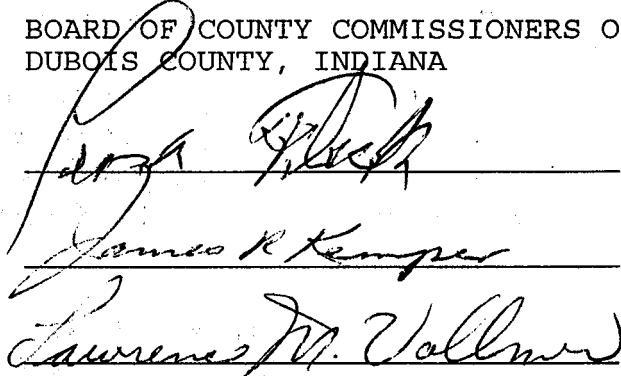 BOARD OF COUNTY COMMISSIONERS O
DUBOIS COUNTY, INDIANA
James R Kemper
Lawrence M. Vollmer